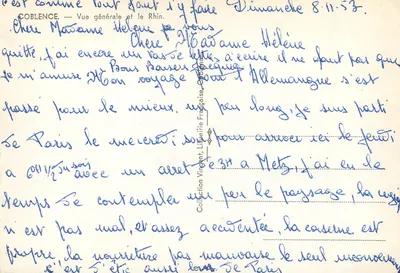 c'est comme tout sauf s'y faire Dimanche 8.11.53.
COBLENCE. — Vue générale et le Rhin.
Chère Madame Hélène je vous
Chère Madame Hélène
quitte, j'ai encore un tas de lettres à écrire il ne faut pas que
je m'amuse Bons Baisers Jacques
Mon voyage pour l'Allemagne s'est
passé pour le mieux, un peu long, je suis parti
de Paris le mercredi soir pour arriver ici le jeudi
a 6H 1/2 du soir avec un arret de 3H a Metz, j'ai eu le
temps de contempler un peu le paysage, la
n'est pas mal, et assez accidentée, la caserne est
propre, la nourriture pas mauvaise le seul inconvenient
c'est d'être aussi loin de Paris
Collection Vincent, Librairie Française